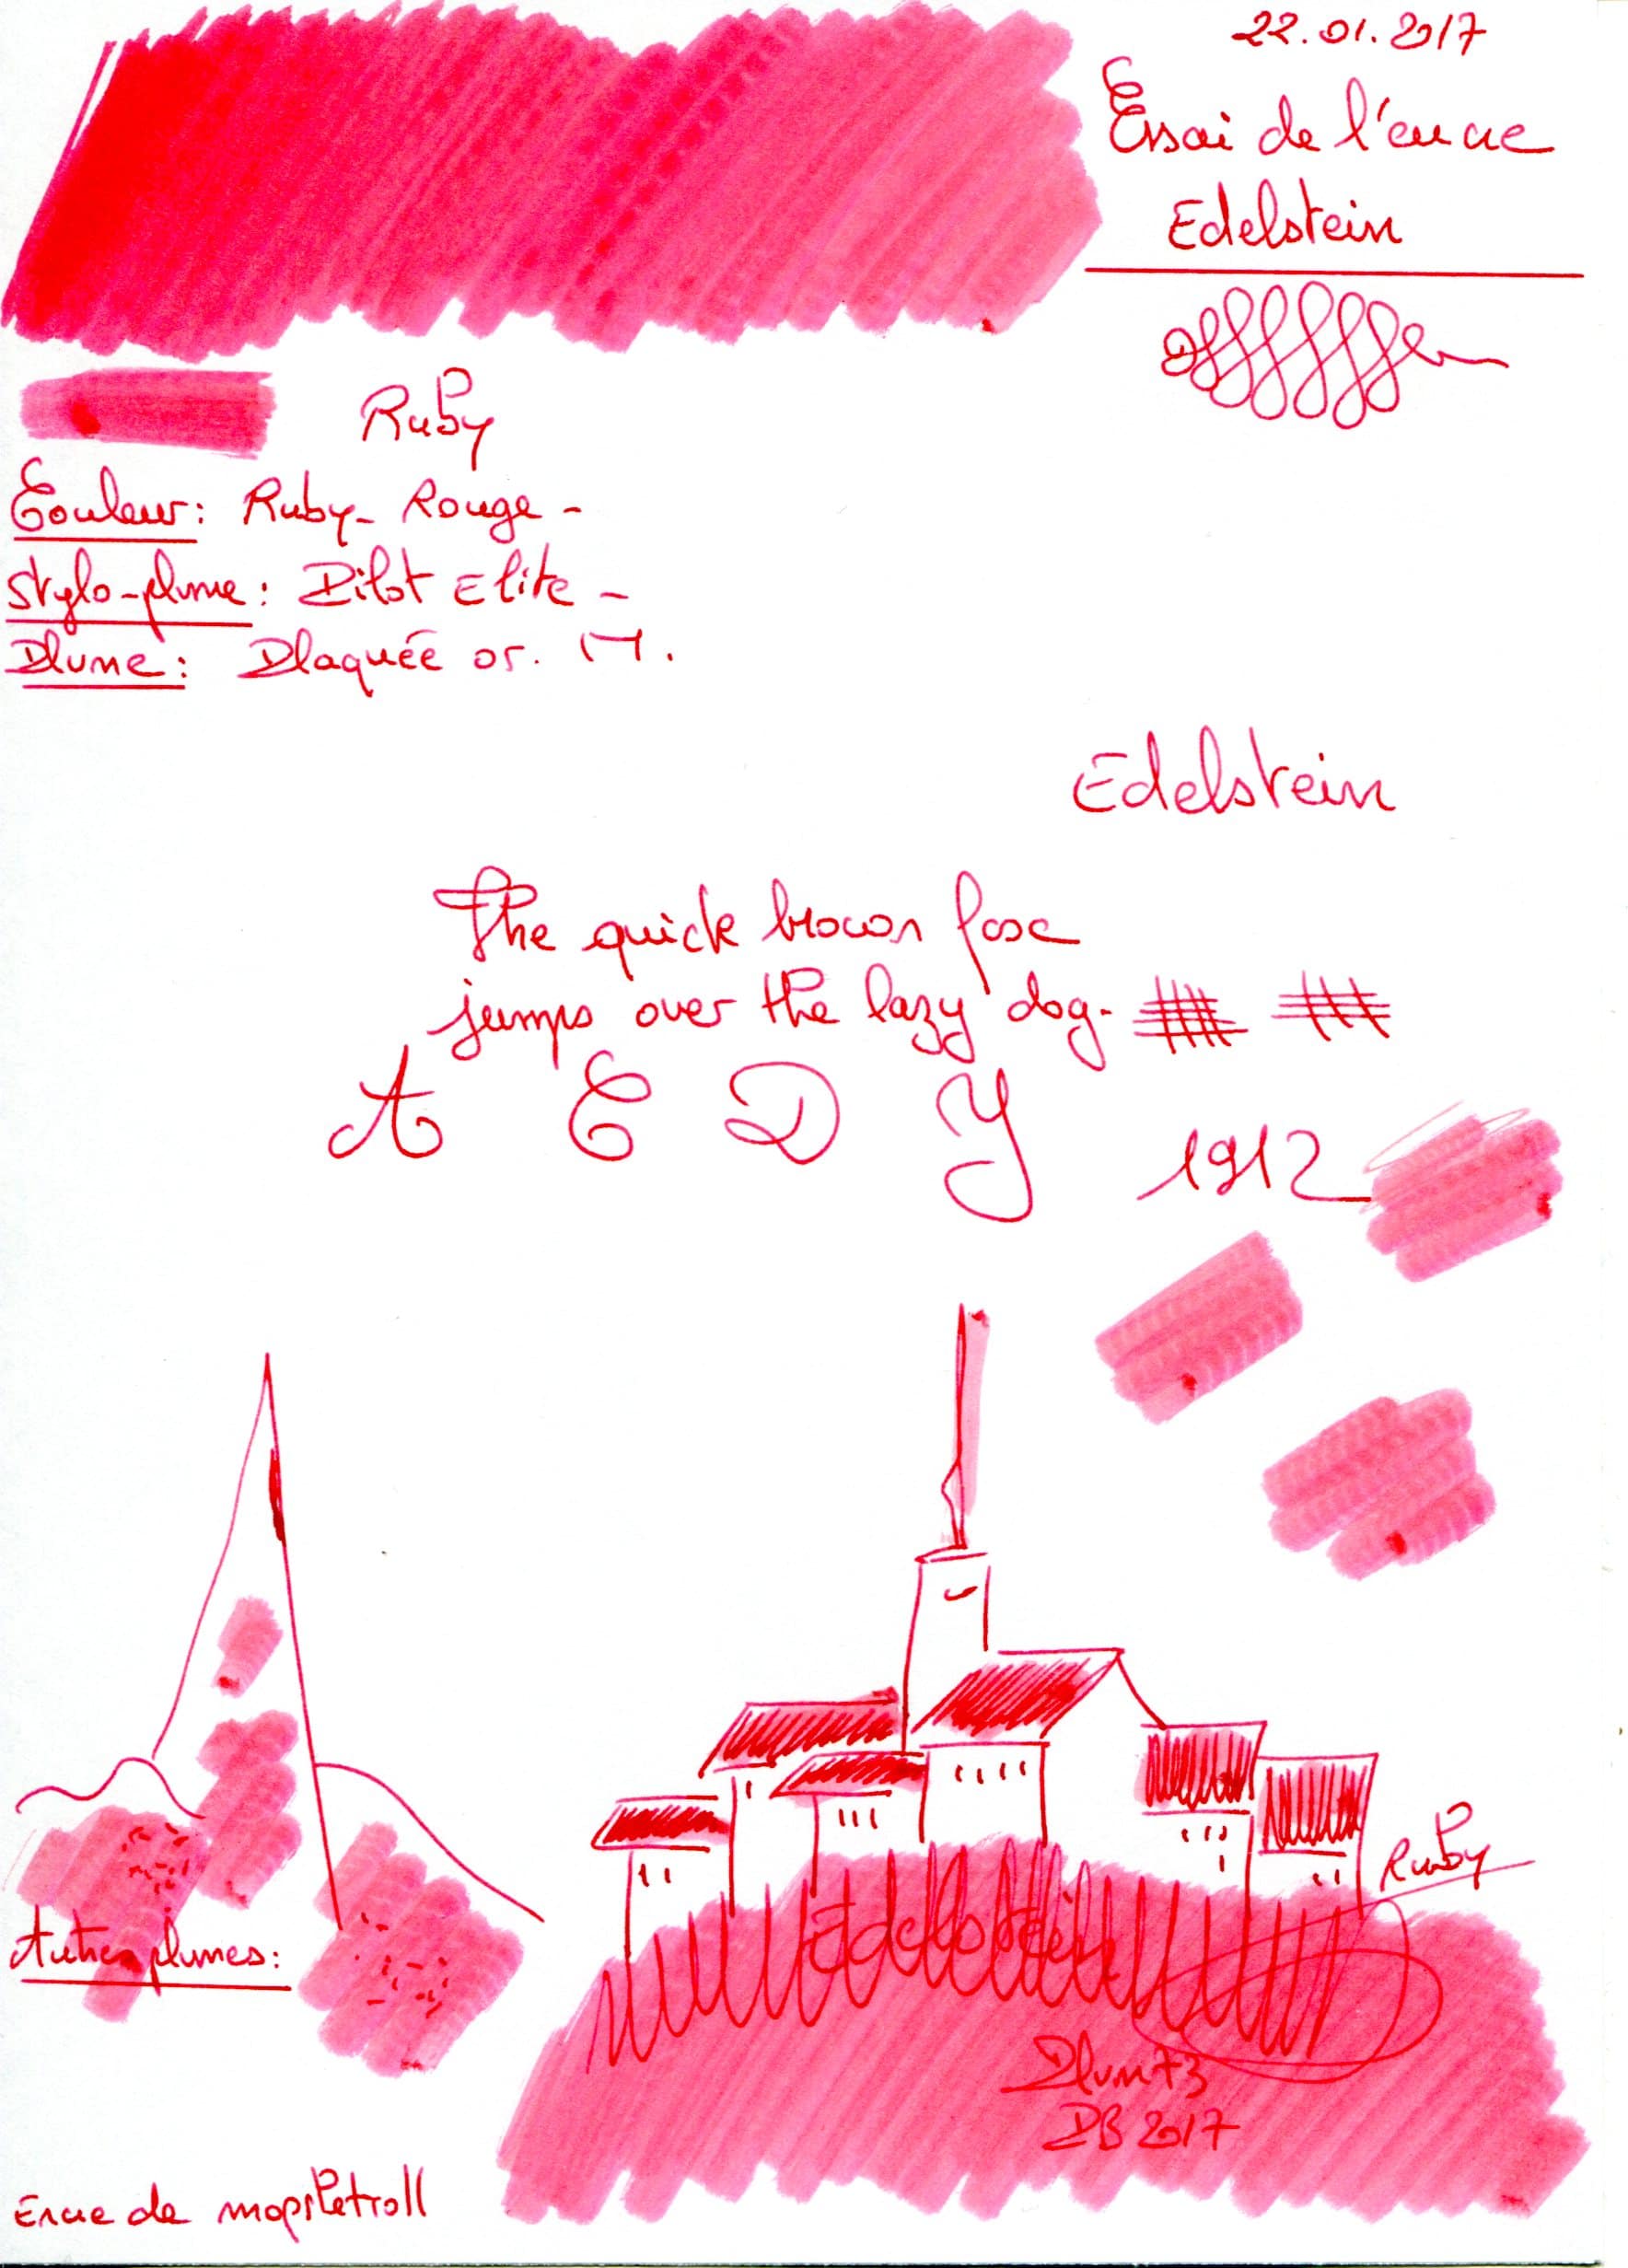 22.01.2017
Essai de l'encre
Edelstein
Ruby
Couleur: Ruby- Rouge -
Stylo-plume: Pilot Elite -
Plume: Plaquée or. M.
Edelstein
The quick brown fox
jumps over the lazy dog.
A E D Y
1912
Ruby
Edelstein
Autres plumes:
Plumt3
DB 2017
Encre de mopsketroll